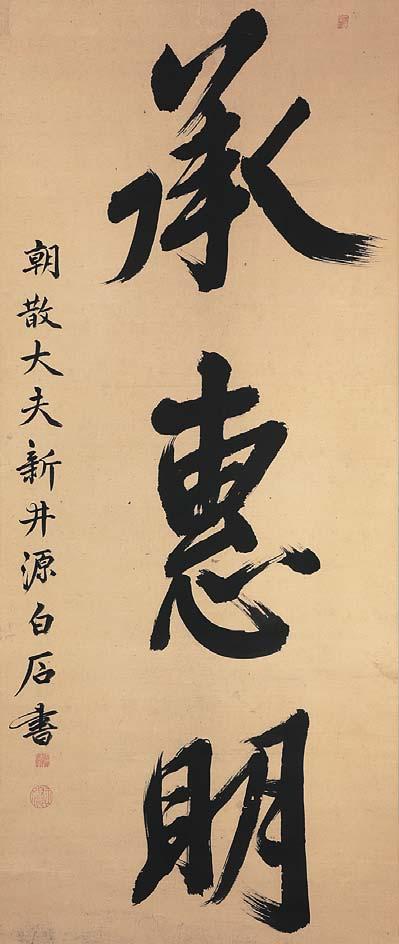 承惠明
朝散大夫新井源白石書